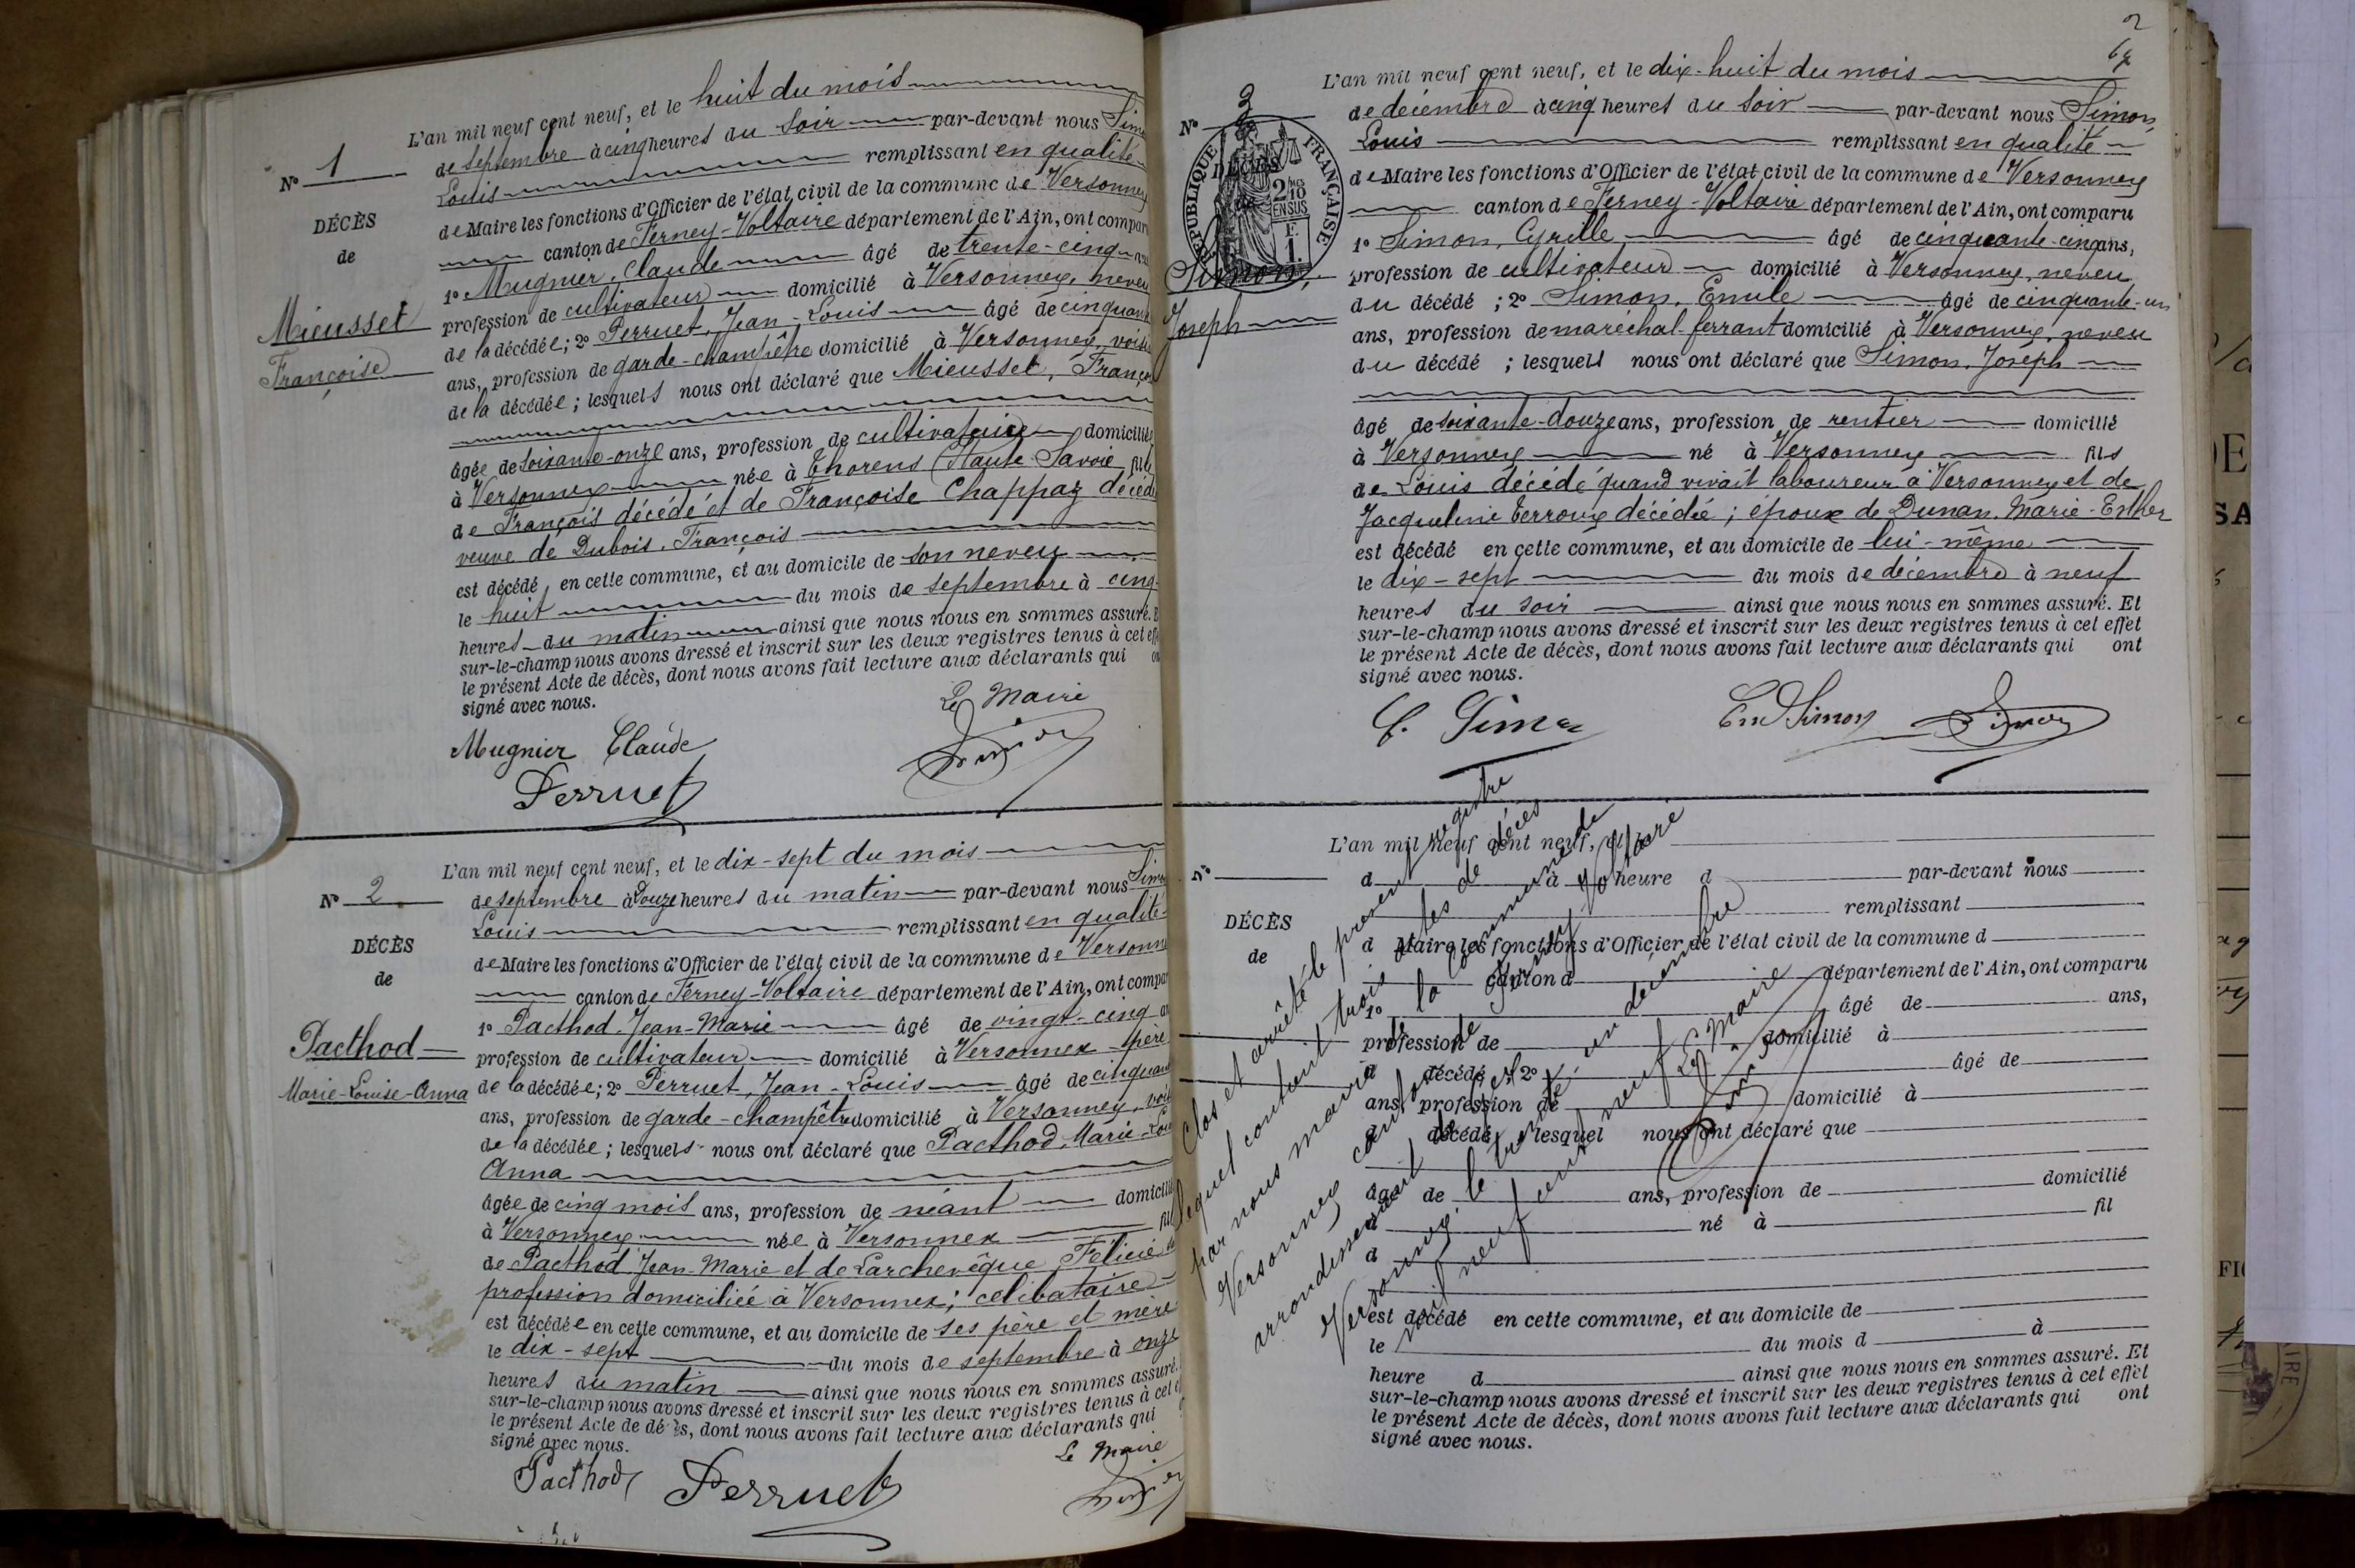 L'an mil neuf cent neuf, et le huit du mois
N° 1
de septembre à cinq heures du soir par-devant nous Sim
Louis remplissant en qualité
DÉCÈS
de Maire les fonctions d'Officier de l'état civil de la commune de Versonnex
de
canton de Ferney-Voltaire département de l'Ain, ont compar
1° Mugnier, Claude âgé de trente-cinq ans
Mieusset
profession de cultivateur domicilié à Versonnex, neveu
Françoise
de la décédée; 2° Perruet, Jean-Louis âgé de cinquan
ans, profession de garde-champêtre domicilié à Versonnex, voisin
de la décédée; lesquels nous ont déclaré que Mieusset, França
âgée de soixante-onze ans, profession de cultivatrice domiciliée
à Versonnex née à Thorens (Haute Savoie, fille
de François décédé et de Françoise Chappaz décéd
veuve de Dubois, François
est décédé en cette commune, et au domicile de son neveu
le huit du mois de septembre à cinq
heures du matin ainsi que nous nous en sommes assuré. E
sur-le-champ nous avons dressé et inscrit sur les deux registres tenus à cet eff
le présent Acte de décès, dont nous avons fait lecture aux déclarants qui on
signé avec nous.
Le Maire
Mugnier Claude
Perruet
L'an mil neuf cent neuf, et le dix-sept du mois
N° 2
de septembre à Douze heures du matin par-devant nous Simo
Louis remplissant en qualité
DÉCÈS
de Maire les fonctions d'Officier de l'état civil de la commune de Versonne
de
canton de Ferney-Voltaire département de l'Ain, ont compar
1° Pacthod, Jean-Marie âgé de vingt-cinq an
Pacthod
profession de cultivateur domicilié à Versonnex père
Marie-Louise-Anna
de la décédée; 2° Perruet, Jean-Louis âgé de cinquant
ans, profession de garde-champêtre domicilié à Versonnex, vois
de la décédée; lesquels nous ont déclaré que Pacthod, Marie-Lou
Anna
âgée de cinq mois ans, profession de néant domicilié
à Versonnex née à Versonnex fil
de Pacthod Jean-Marie et de Larchevêque Félicie
profession domiciliée à Versonnex; célibataire
est décédée en cette commune, et au domicile de ses père et mère
le dix-sept du mois de septembre à onze
heures du matin ainsi que nous nous en sommes assuré.
sur-le-champ nous avons dressé et inscrit sur les deux registres tenus à cet e
le présent Acte de décès, dont nous avons fait lecture aux déclarants qui
signé avec nous.
Le Maire
Pacthod Perruet
2
L'an mil neuf cent neuf, et le dix-huit du mois
N° 3
de décembre à cinq heures du soir par-devant nous Simon,
Louis remplissant en qualité
RÉPUBLIQUE FRANÇAISE
DÉCÈS
2/10 EN SUS
F. 1.
de Maire les fonctions d'Officier de l'état civil de la commune de Versonnex
canton de Ferney-Voltaire département de l'Ain, ont comparu
1° Simon, Cyrille âgé de cinquante-cinq ans,
Simon,
profession de cultivateur domicilié à Versonnex, neveu
Joseph
du décédé; 2° Simon, Emile âgé de cinquante-un
ans, profession de maréchal-ferrant domicilié à Versonnex, neveu
du décédé; lesquels nous ont déclaré que Simon, Joseph
âgé de soixante-douze ans, profession de rentier domicilié
à Versonnex né à Versonnex fils
de Louis décédé quand vivait laboureur à Versonnex et de
Jacqueline Terroux décédée; époux de Dunan, Marie-Esther
est décédé en cette commune, et au domicile de lui-même
le dix-sept du mois de décembre à neuf
heures du soir ainsi que nous nous en sommes assuré. Et
sur-le-champ nous avons dressé et inscrit sur les deux registres tenus à cet effet
le présent Acte de décès, dont nous avons fait lecture aux déclarants qui ont
signé avec nous.
C. Simon Em Simon Simon
L'an mil neuf cent neuf, et
N°
d à heure d par-devant nous
remplissant
DÉCÈS
d Maire les fonctions d'Officier de l'état civil de la commune d
de
canton d département de l'Ain, ont comparu
1° âgé de ans,
profession de domicilié à
d décédé; 2° âgé de
ans, profession de domicilié à
d décédé; lesquel nous ont déclaré que
âgé de ans, profession de domicilié
à né à fil
d
est décédé en cette commune, et au domicile de
le du mois d à
heure d ainsi que nous nous en sommes assuré. Et
sur-le-champ nous avons dressé et inscrit sur les deux registres tenus à cet effet
le présent Acte de décès, dont nous avons fait lecture aux déclarants qui ont
signé avec nous.
Clos et arrêté le présent registre
lequel contient trois actes de décès
par nous maire de la commune de
Versonnex canton de Ferney Voltaire
arrondissement de Gex
Versonnex, le trente un décembre
mil neuf cent neuf
Le Maire